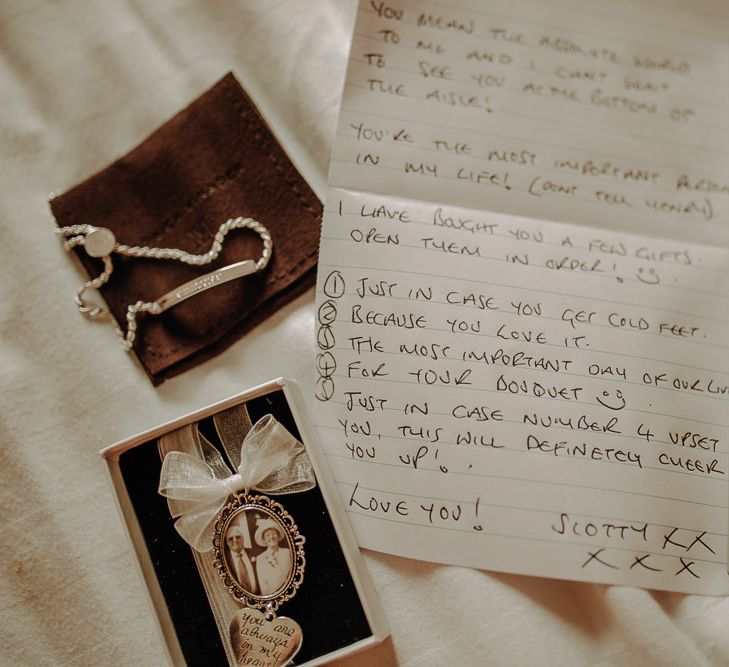 YOU MEAN THE ABSOLUTE WORLD
TO ME AND I CAN'T WAIT
TO SEE YOU AT THE BOTTOM OF
THE AISLE!
YOU'RE THE MOST IMPORTANT PERSON
IN MY LIFE! (DON'T TELL HENRY)
I HAVE BOUGHT YOU A FEW GIFTS.
OPEN THEM IN ORDER!
① JUST IN CASE YOU GET COLD FEET.
② BECAUSE YOU LOVE IT.
③ THE MOST IMPORTANT DAY OF OUR LIV
④ FOR YOUR BOUQUET
⑤ JUST IN CASE NUMBER 4 UPSET
YOU, THIS WILL DEFINETELY CHEER
YOU UP!
LOVE YOU!
SCOTTY XX
X X X
you are
always
in my
heart